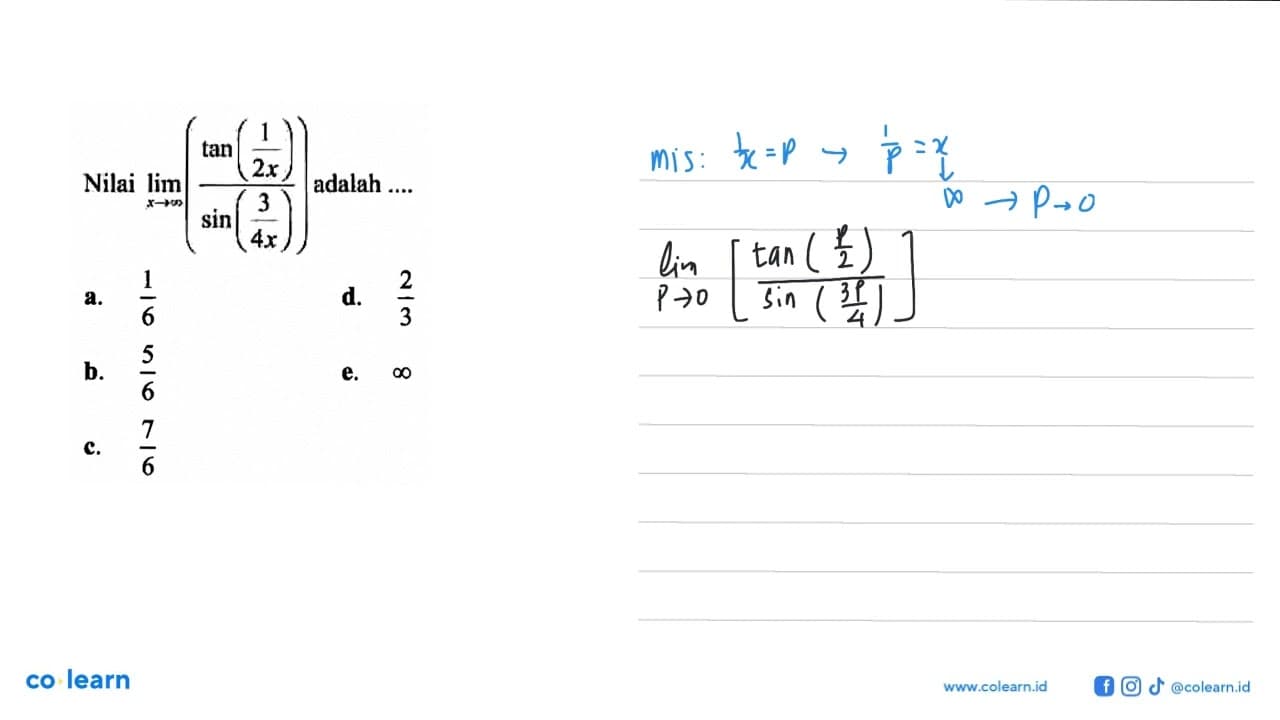 Nilai lim x→∞ (tan(1/2x) / sin(3/4x)) adalah ....
a. 1/6
d. 2/3
b. 5/6
e. ∞
c. 7/6
mis: 1/x = p → 1/p = x
↓
∞ → p→0
lim p→0 [tan(p/2) / sin(3p/4)]
co learn
www.colearn.id @colearn.id